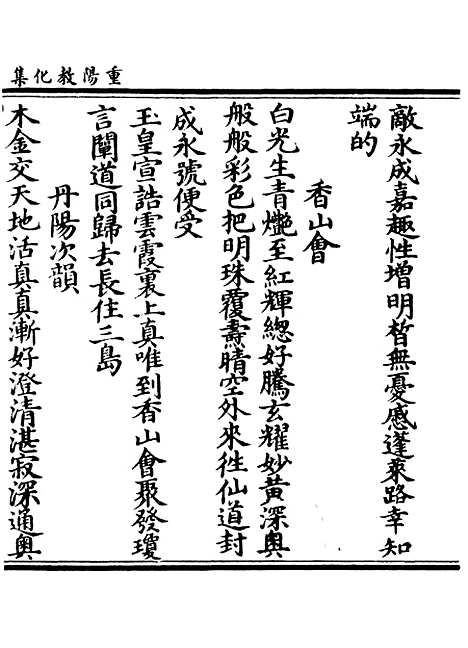 重陽教化集
敵永成嘉趣性增明晢無憂慼蓬萊路幸知
端的
香山會
白光生青艷至紅輝緫好騰玄耀妙黃深奥
般般彩色把明珠覆燾晴空外來徃仙道封
成永號便受
玉皇宣誥雲霞裏上真唯到香山會聚發瓊
言闡道同歸去長住三島
丹陽次韻
木金交天地活真真漸好澄清湛寂深通奥